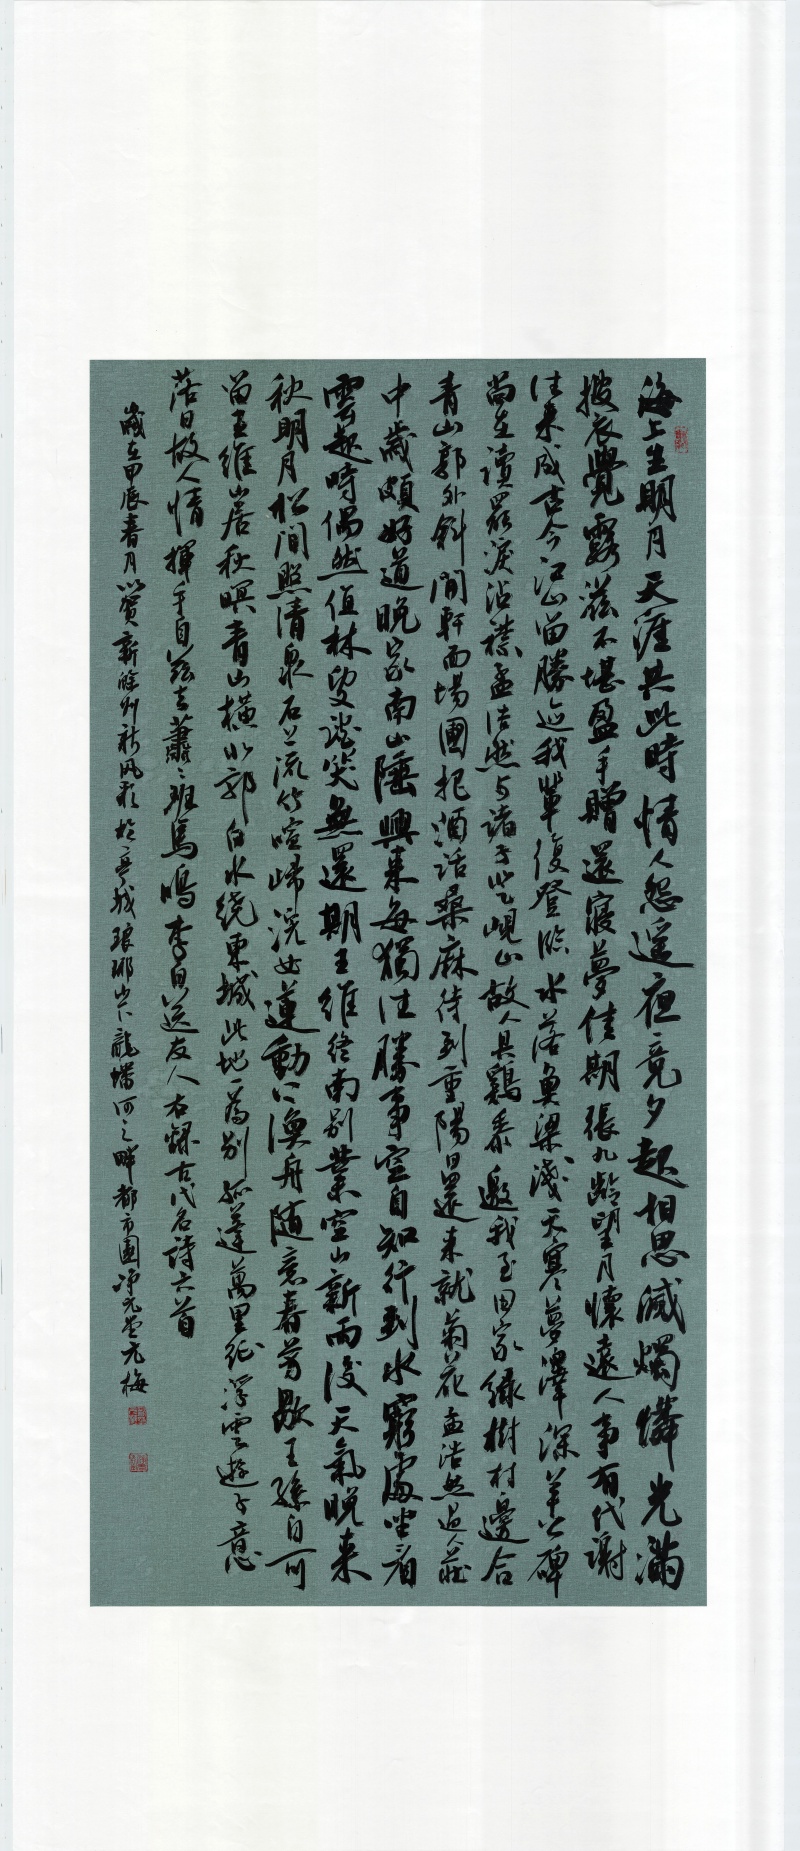 海上生明月天涯共此時情人怨遥夜竟夕起相思滅燭憐光滿
披衣覺露滋不堪盈手贈還寢夢佳期張九齡望月懷遠人事有代謝
往來成古今江山留勝迹我輩復登臨水落魚梁淺天寒夢澤深羊公碑
尚在讀罷淚沾襟孟浩然与諸子登峴山故人具鷄黍邀我至田家綠樹村邊合
青山郭外斜開軒面場圃把酒話桑麻待到重陽日還來就菊花孟浩然過人莊
中歲頗好道晚家南山陲興來每獨往勝事空自知行到水窮處坐看
雲起時偶然值林叟談笑無還期王維終南别業空山新雨後天氣晚來
秋明月松間照清泉石上流竹喧歸浣女蓮動下漁舟隨意春芳歇王孫自可
留王維山居秋暝青山橫北郭白水繞東城此地一爲别孤蓬萬里征浮雲遊子意
落日故人情揮手自兹去蕭々班馬鳴李白送友人右録古代名詩六首
歲在甲辰春月以賀新滁州新風彩於亭城琅琊山下龍蟠河之畔都市園淨元堂元梅